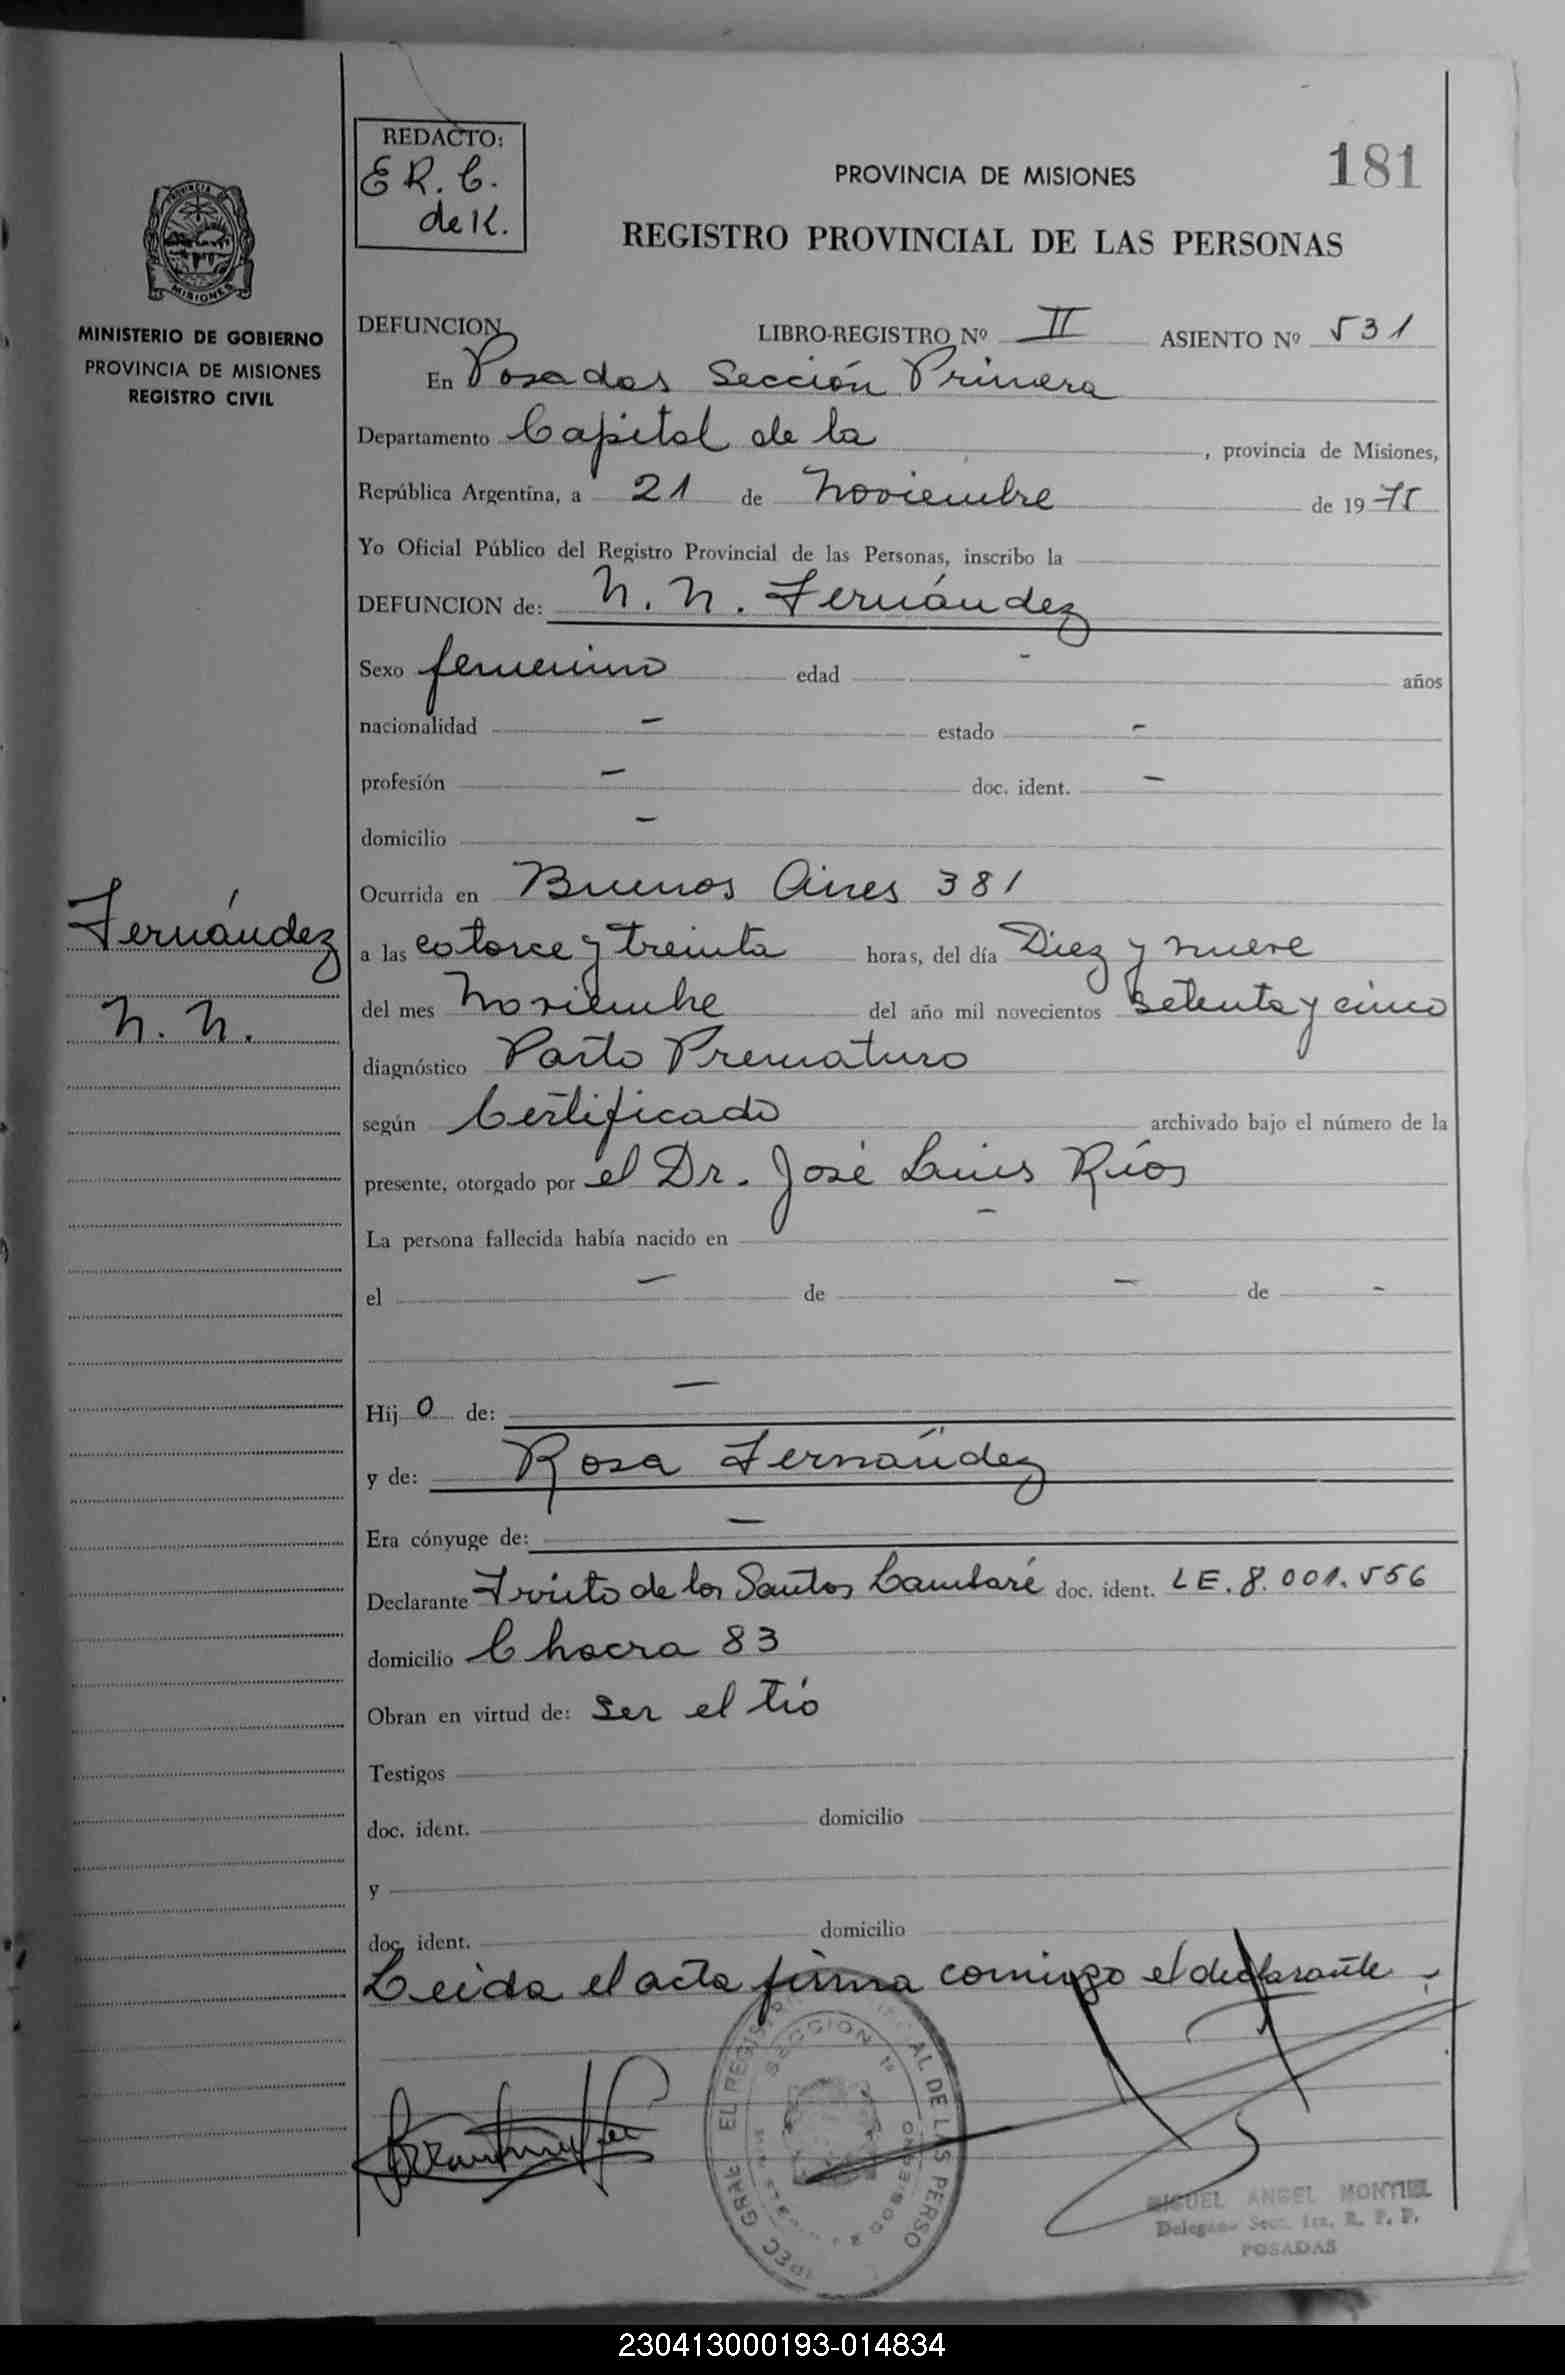 REDACTO:
E R. C.
de K.
181
PROVINCIA DE MISIONES
REGISTRO PROVINCIAL DE LAS PERSONAS
PROVINCIA DE
MISIONES
MINISTERIO DE GOBIERNO
PROVINCIA DE MISIONES
REGISTRO CIVIL
DEFUNCION LIBRO-REGISTRO Nº II ASIENTO Nº 531
En Posadas Sección Primera
Departamento Capital de la , provincia de Misiones,
República Argentina, a 21 de Noviembre de 1975
Yo Oficial Público del Registro Provincial de las Personas, inscribo la
DEFUNCION de: N. N. Fernández
Sexo femenino edad - años
nacionalidad - estado -
profesión - doc. ident. -
domicilio -
Ocurrida en Buenos Aires 381
Fernández
N. N.
a las catorce y treinta horas, del día Diez y nueve
del mes Noviembre del año mil novecientos setenta y cinco
diagnóstico Parto Prematuro
según Certificado archivado bajo el número de la
presente, otorgado por el Dr. José Luis Ríos
La persona fallecida había nacido en -
el - de - de -
Hijo de: -
y de: Rosa Fernández
Era cónyuge de: -
Declarante de los Santos doc. ident. LE. 8.001.556
domicilio Chacra 83
Obran en virtud de: Ser el tío
Testigos
doc. ident. domicilio
y
doc. ident. domicilio
Leida el acta firma conmigo el declarante.-
SECCION 1ª
AL DE LAS PERSO
EL REGIST
GRAL
MIGUEL ANGEL MONTIEL
POSADAS
230413000193-014834